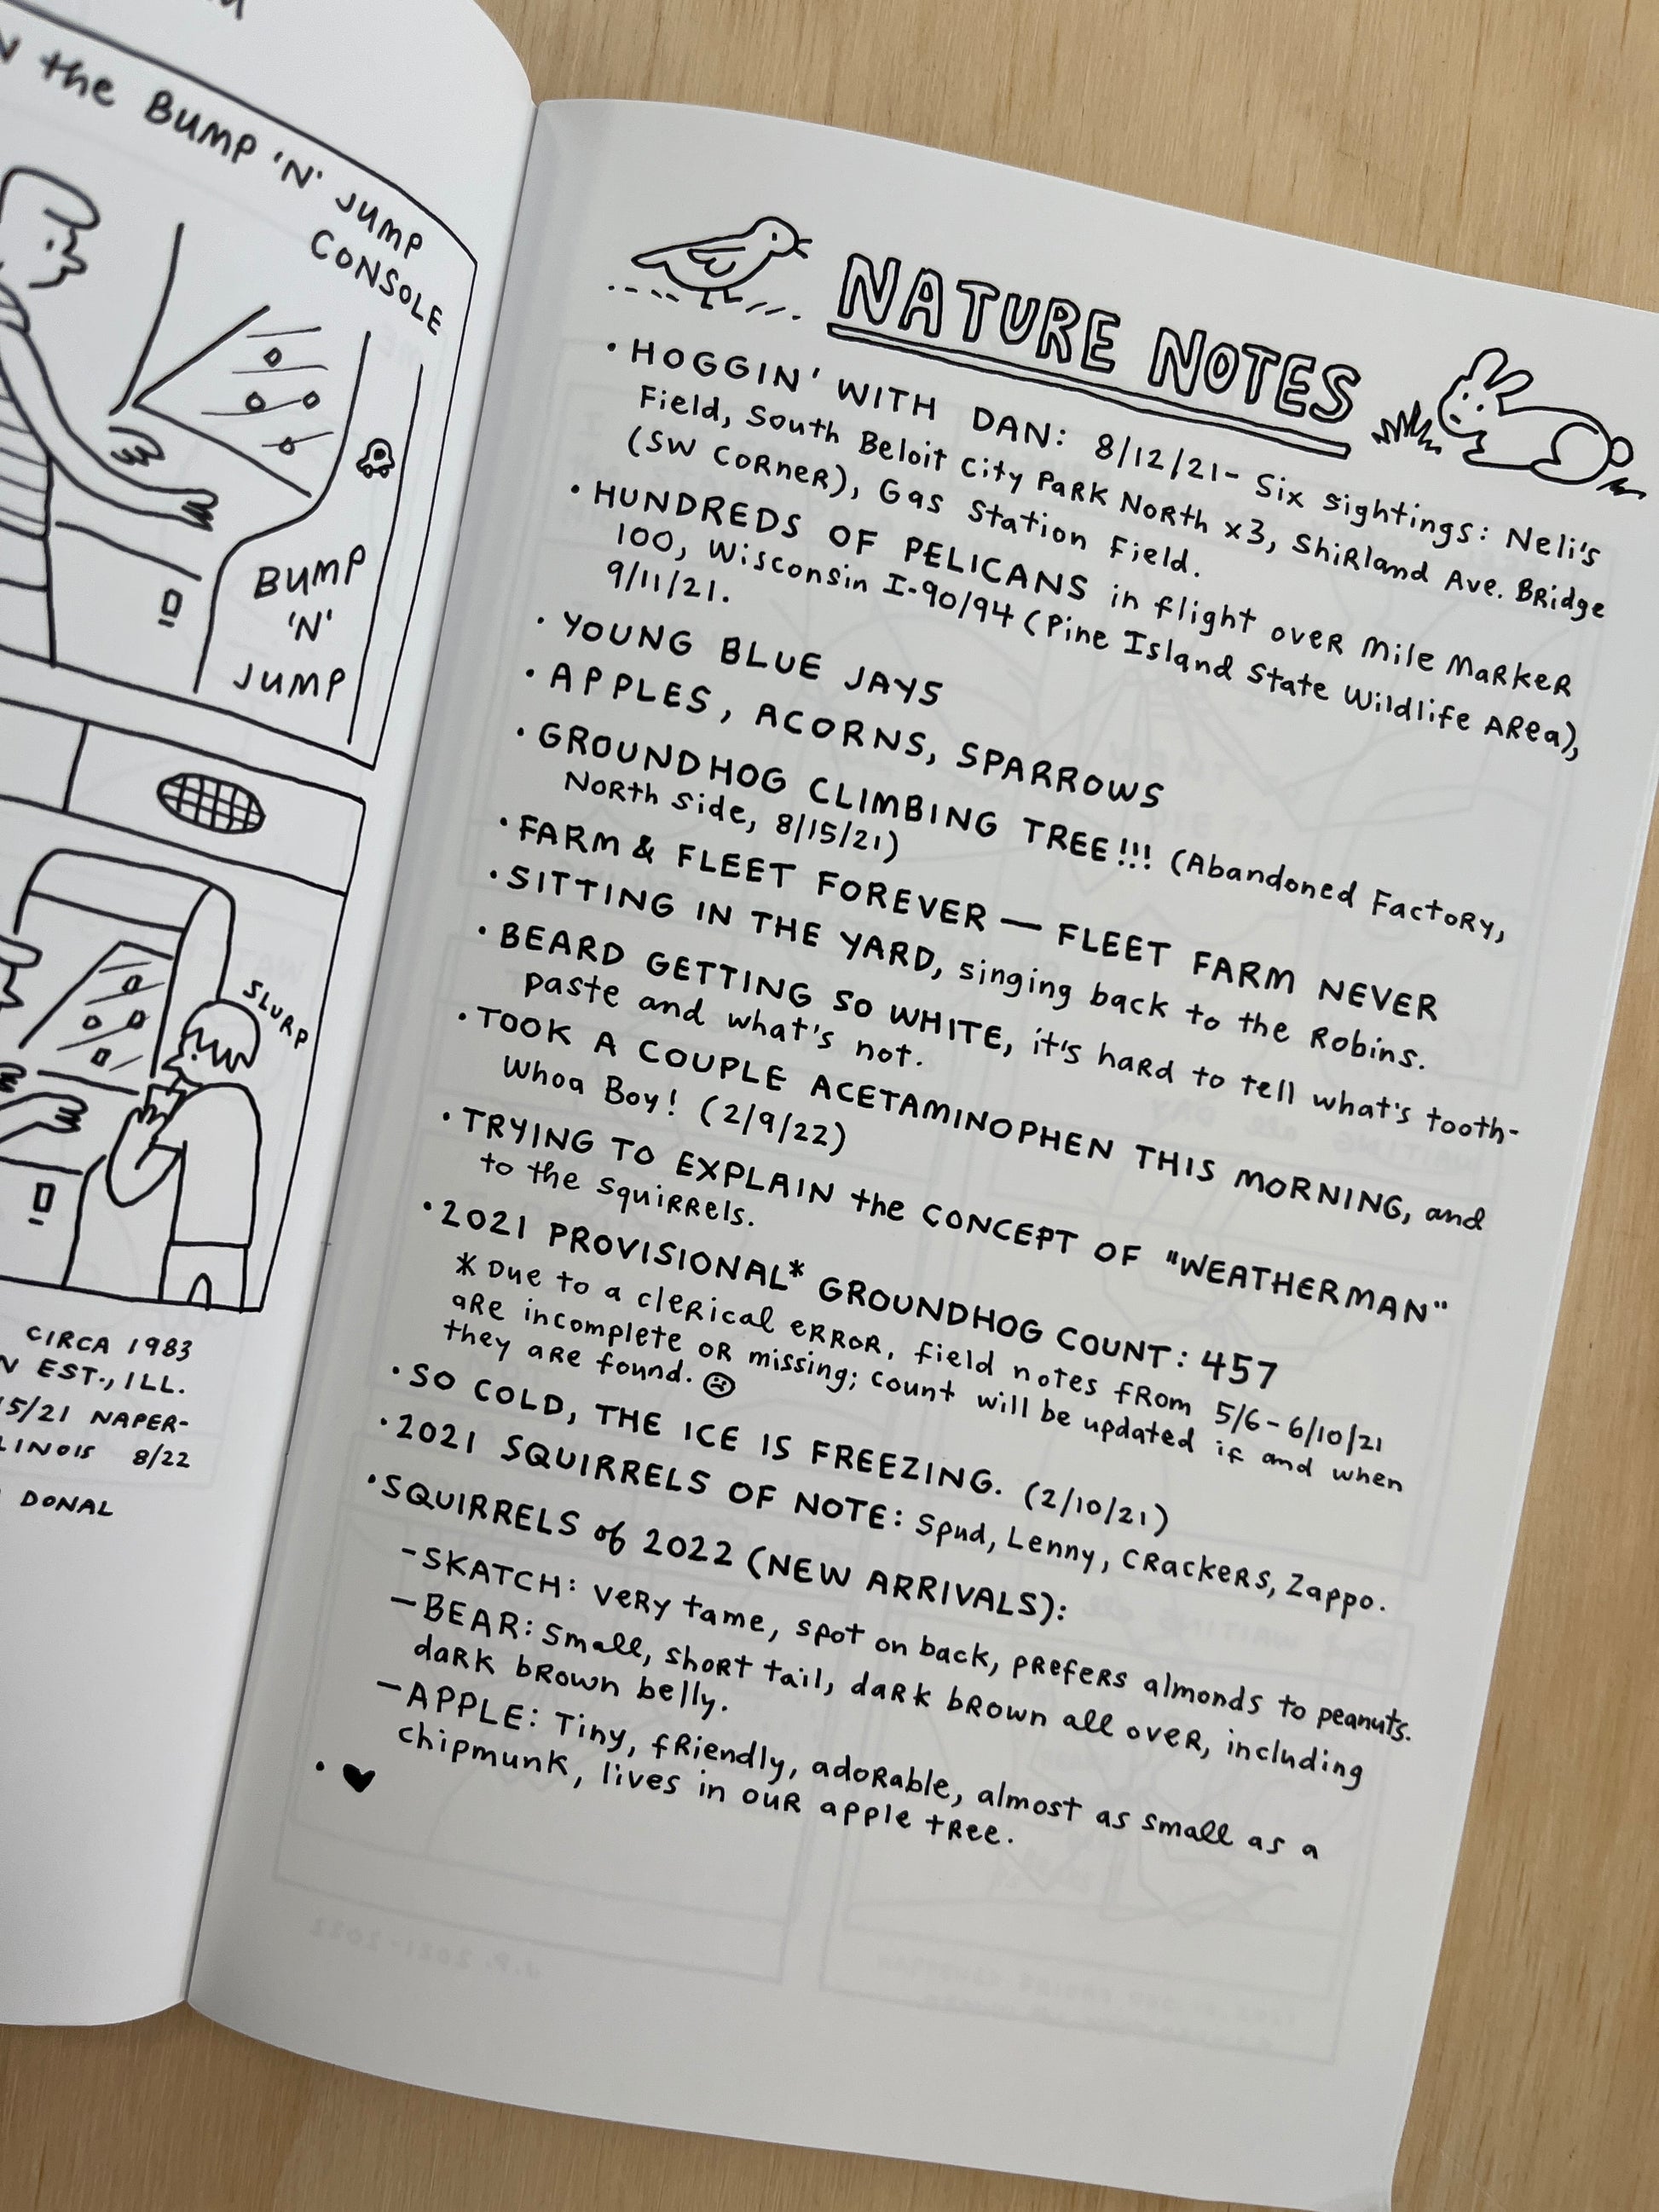 the Bump 'N' Jump
CONSOLE
BUMP
'N'
JUMP
SLURP
CIRCA 1983
EST., ILL.
5/21 NAPER-
LINOIS 8/22
DONAL
NATURE NOTES
• HOGGIN' WITH DAN: 8/12/21- Six sightings: Neli's
Field, South Beloit City Park North x3, Shirland Ave. Bridge
(SW CORNER), Gas Station Field.
• HUNDREDS OF PELICANS in flight over Mile Marker
100, Wisconsin I-90/94 (Pine Island State Wildlife Area),
9/11/21.
• YOUNG BLUE JAYS
• APPLES, ACORNS, SPARROWS
• GROUNDHOG CLIMBING TREE!!! (Abandoned Factory,
North Side, 8/15/21)
• FARM & FLEET FOREVER — FLEET FARM NEVER
• SITTING IN THE YARD, singing back to the Robins.
• BEARD GETTING SO WHITE, it's hard to tell what's tooth-
paste and what's not.
• TOOK A COUPLE ACETAMINOPHEN THIS MORNING, and
Whoa Boy! (2/9/22)
• TRYING TO EXPLAIN the CONCEPT OF "WEATHERMAN"
to the squirrels.
• 2021 PROVISIONAL* GROUNDHOG COUNT: 457
* Due to a clerical error, field notes from 5/6-6/10/21
are incomplete or missing; count will be updated if and when
they are found. ☹
• SO COLD, THE ICE IS FREEZING. (2/10/21)
• 2021 SQUIRRELS OF NOTE: Spud, Lenny, Crackers, Zappo.
• SQUIRRELS of 2022 (NEW ARRIVALS):
-SKATCH: very tame, spot on back, prefers almonds to peanuts.
-BEAR: Small, short tail, dark brown all over, including
dark brown belly.
-APPLE: Tiny, friendly, adorable, almost as small as a
chipmunk, lives in our apple tree.
• ♥